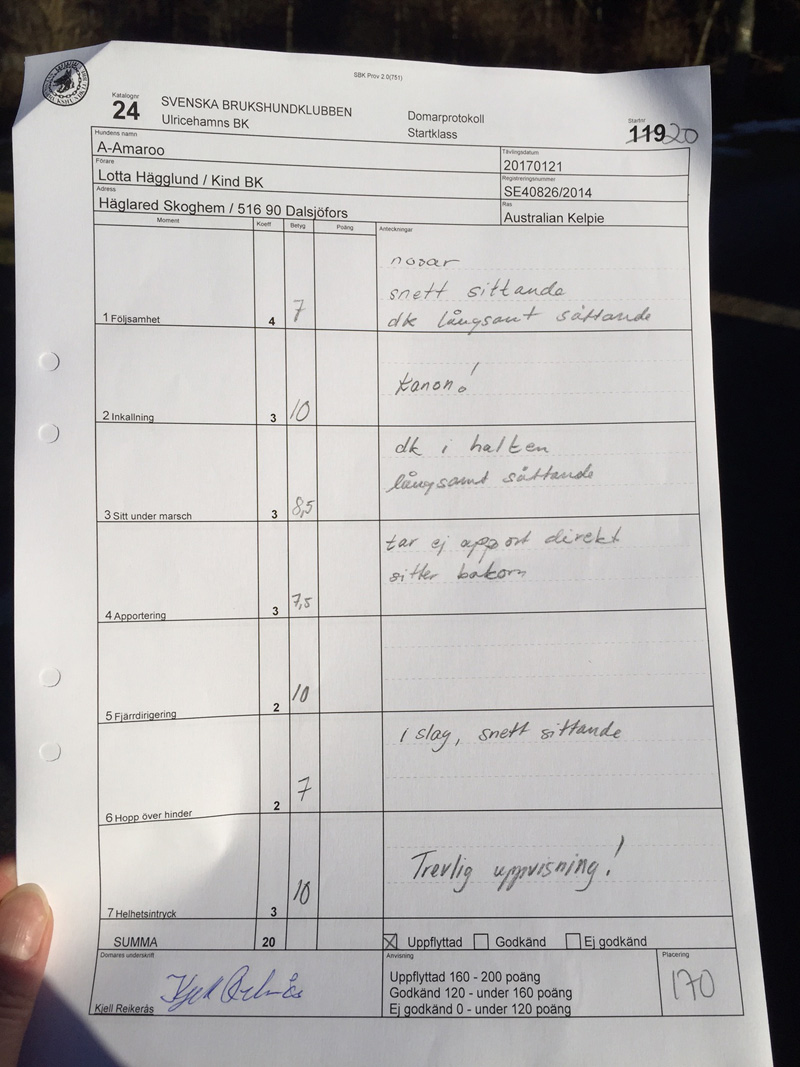 SBK Prov 2.0(751)
Katalognr
24
SVENSKA BRUKSHUNDKLUBBEN
Ulricehamns BK
Domarprotokoll
Startklass
Startnr
119 20
Hundens namn
A-Amaroo
Tävlingsdatum
20170121
Förare
Lotta Hägglund / Kind BK
Registreringsnummer
SE40826/2014
Adress
Häglared Skoghem / 516 90 Dalsjöfors
Ras
Australian Kelpie
Moment Koeff Betyg Poäng Anteckningar
nosar
snett sittande
dk långsamt sättande
1 Följsamhet 4 7
kanon!
2 Inkallning 3 10
dk i halten
långsamt sättande
3 Sitt under marsch 3 8,5
tar ej apport direkt
sitter bakom
4 Apportering 3 7,5
5 Fjärrdirigering 2 10
1 slag, snett sittande
6 Hopp över hinder 2 7
Trevlig uppvisning!
7 Helhetsintryck 3 10
SUMMA 20
Uppflyttad Godkänd Ej godkänd
Domares underskrift
Kjell Reikerås
Anvisning
Uppflyttad 160 - 200 poäng
Godkänd 120 - under 160 poäng
Ej godkänd 0 - under 120 poäng
Placering
170